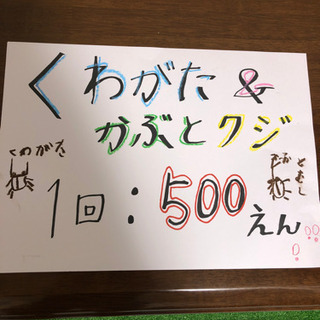 くわがた &
かぶとクジ
くわがた
かぶとむし
1回:500えん!!!